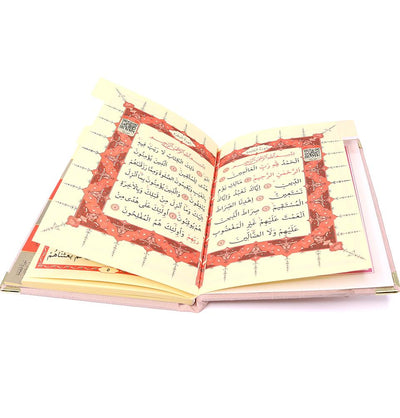 بِسْمِ اللّٰهِ الرَّحْمٰنِ الرَّحِيمِ
اَلْحَمْدُ لِلّٰهِ رَبِّ الْعَالَمِينَ
اَلرَّحْمٰنِ الرَّحِيمِ مَالِكِ يَوْمِ
الدِّينِ اِيَّاكَ نَعْبُدُ وَاِيَّاكَ
نَسْتَعِينُ اِهْدِنَا الصِّرَاطَ
الْمُسْتَقِيمَ صِرَاطَ الَّذِينَ
اَنْعَمْتَ عَلَيْهِمْ غَيْرِ الْمَغْضُوبِ
عَلَيْهِمْ وَلَا الضَّالِّينَ
بِسْمِ اللّٰهِ الرَّحْمٰنِ الرَّحِيمِ
ذٰلِكَ الْكِتَابُ لَا رَيْبَ فِيهِ
الَّذِينَ يُؤْمِنُونَ
بِالْغَيْبِ وَيُقِيمُونَ الصَّلٰوةَ وَمِمَّا رَزَقْنَاهُمْ
يُنْفِقُونَ وَالَّذِينَ يُؤْمِنُونَ بِمَا اُنْزِلَ
اِلَيْكَ وَمَا اُنْزِلَ مِنْ قَبْلِكَ وَبِالْاٰخِرَةِ
هُمْ يُوقِنُونَ اُولٰئِكَ عَلٰى هُدًى مِنْ
رَبِّهِمْ وَاُولٰئِكَ هُمُ الْمُفْلِحُونَ